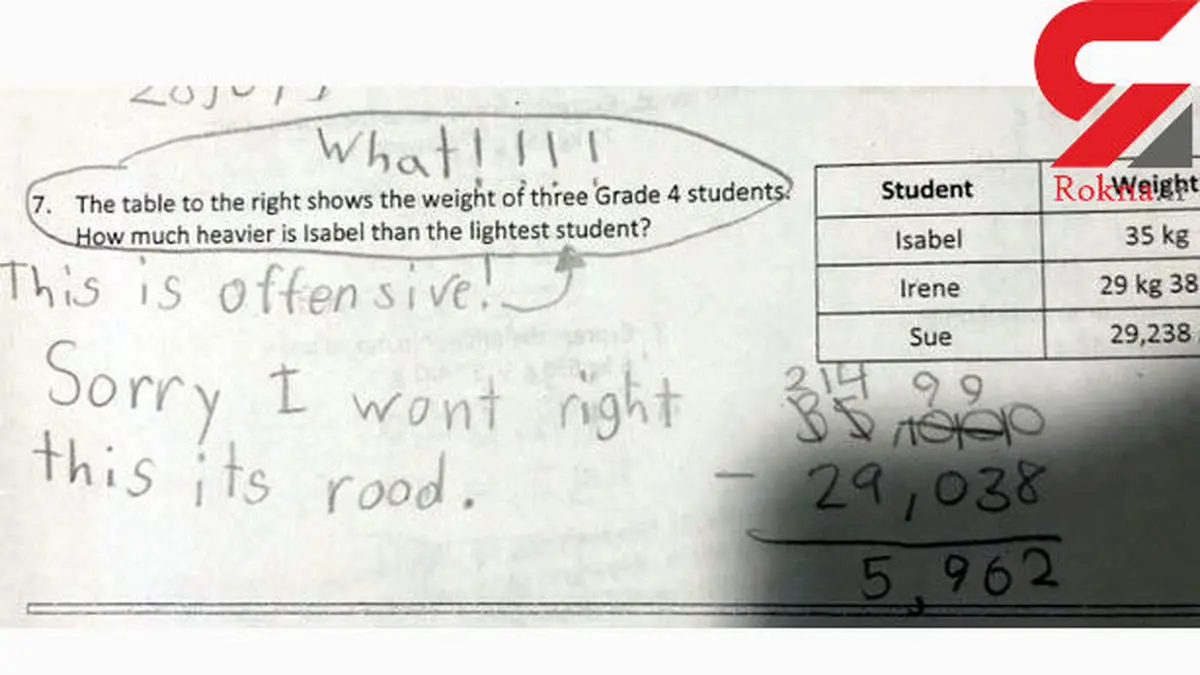 What!!!!
7. The table to the right shows the weight of three Grade 4 students.
How much heavier is Isabel than the lightest student?
This is offensive!
Sorry I wont right
this its rood.
Student Weight
Isabel 35 kg
Irene 29 kg 38
Sue 29,238
214 9 9
- 29,038
5,962